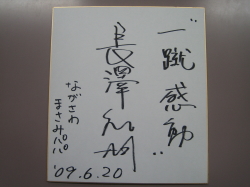 "一蹴感動"
長澤和明
ながさわ
まさみパパ
'09.6.20